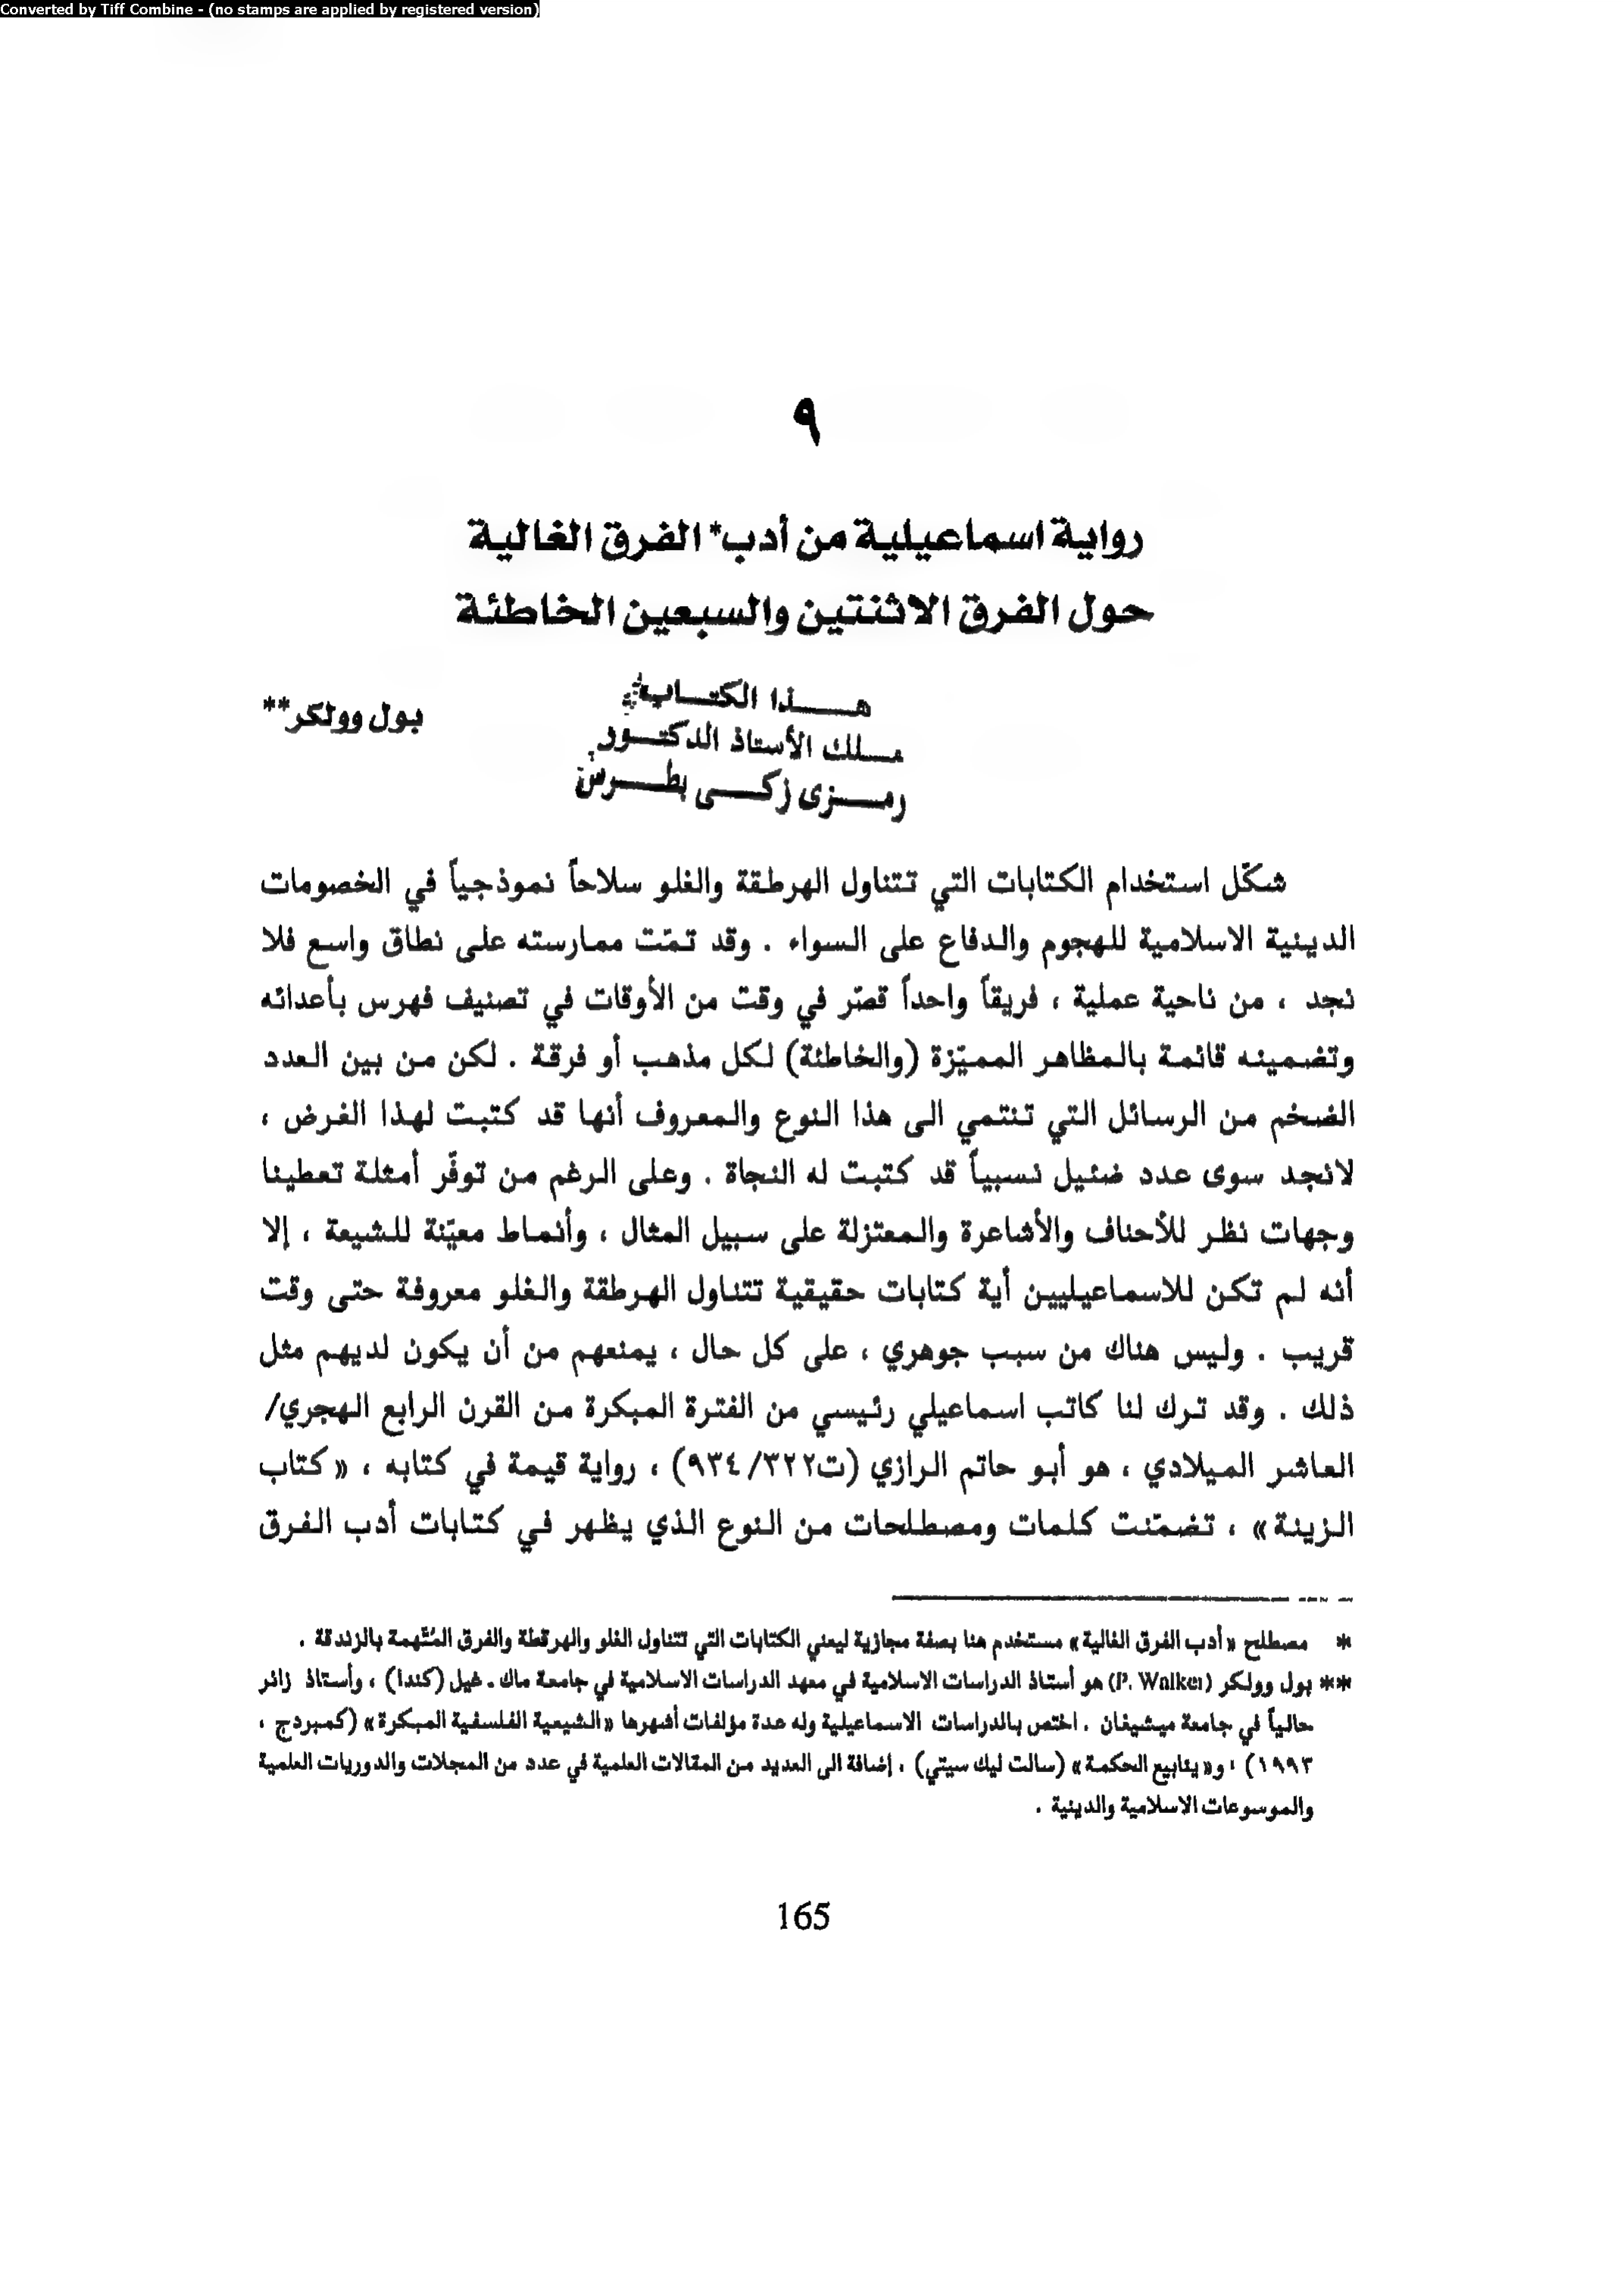 Converted by Tiff Combine - (no stamps are applied by registered version)
٩
رواية اسماعيلية من أدب* الفرق الغالية
حول الفرق الاثنتين والسبعين الخاطئة
بول وولكر**
هذا الكتاب
ملك الأستاذ الدكتور
رمزى زكى بطرس
شكّل استخدام الكتابات التي تتناول الهرطقة والغلو سلاحاً نموذجياً في الخصومات
الدينية الاسلامية للهجوم والدفاع على السواء . وقد تمّت ممارسته على نطاق واسع فلا
نجد ، من ناحية عملية ، فريقاً واحداً قصّر في وقت من الأوقات في تصنيف فهرس بأعدائه
وتضمينه قائمة بالمظاهر المميّزة (والخاطئة) لكل مذهب أو فرقة . لكن من بين العدد
الضخم من الرسائل التي تنتمي الى هذا النوع والمعروف أنها قد كتبت لهذا الغرض ،
لانجد سوى عدد ضئيل نسبياً قد كتبت له النجاة . وعلى الرغم من توفّر أمثلة تعطينا
وجهات نظر للأحناف والأشاعرة والمعتزلة على سبيل المثال ، وأنماط معيّنة للشيعة ، إلا
أنه لم تكن للاسماعيليين أية كتابات حقيقية تتناول الهرطقة والغلو معروفة حتى وقت
قريب . وليس هناك من سبب جوهري ، على كل حال ، يمنعهم من أن يكون لديهم مثل
ذلك . وقد ترك لنا كاتب اسماعيلي رئيسي من الفترة المبكرة من القرن الرابع الهجري/
العاشر الميلادي ، هو أبو حاتم الرازي (ت٣٢٢/٩٣٤) ، رواية قيمة في كتابه ، «كتاب
الزينة» ، تضمّنت كلمات ومصطلحات من النوع الذي يظهر في كتابات أدب الفرق
* مصطلح «أدب الفرق الغالية» مستخدم هنا بصفة مجازية ليعني الكتابات التي تتناول الغلو والهرقطة والفرق المُتّهمة بالزندقة .
** بول وولكر (P. Walker) هو أستاذ الدراسات الاسلامية في معهد الدراسات الاسلامية في جامعة ماك . غيل (كندا) ، وأستاذ زائر
حالياً في جامعة ميشيغان . اختص بالدراسات الاسماعيلية وله عدة مؤلفات أشهرها «الشيعية الفلسفية المبكرة» (كمبردج ،
١٩٩٣) ؛ و«ينابيع الحكمة» (سالت ليك سيتي) ، إضافة الى العديد من المقالات العلمية في عدد من المجلات والدوريات العلمية
والموسوعات الاسلامية والدينية .
165